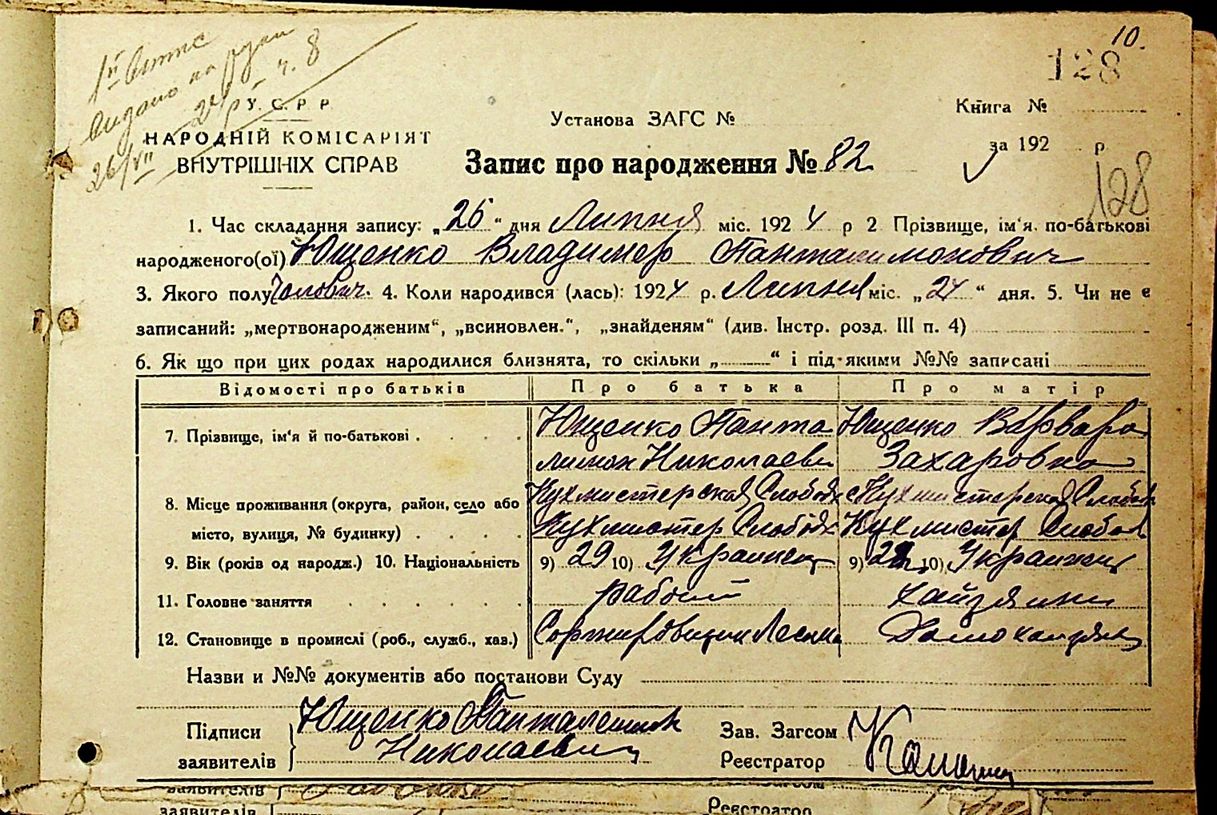 10.
128
1й
Видано на руки
26/VII 24 р. ч. 8
У. С. Р. Р.
НАРОДНІЙ КОМІСАРІЯТ
ВНУТРІШНІХ СПРАВ
Установа ЗАГС №
Книга №
за 192 р
Запис про народження № 82
128
1. Час складання запису: „26“ дня Липня міс. 1924 р 2 Прізвище, ім'я по-батькові
народженого(ої) Ющенко Владимер Панталимонович
3. Якого полу Чоловіч. 4. Коли народився (лась): 1924 р. Липня міс. „24“ дня. 5. Чи не є
записаний: „мертвонародженим“, „всиновлен.“, „знайденям“ (див. Інстр. розд. III п. 4)
6. Як що при цих родах народилися близнята, то скільки „ “ і під якими №№ записані
Відомості про батьків Про батька Про матір
7. Прізвище, ім'я й по-батькові Ющенко Панта Ющенко Варвара
лимон Николаеви Захаровна
8. Місце проживання (округа, район, село або Кухмистерская Слобод Кухмистерская Слобод
місто, вулиця, № будинку) Кухмистер Слобод Кухмистер Слобод
9. Вік (років од народж.) 10. Національність 9) 29 10) Украинец 9) 22 10) Украинка
11. Головне заняття рабочий
12. Становище в промислі (роб., служб., хав.)
Назви и №№ документів або постанови Суду
Підписи Ющенко Панталемон
заявителів Николаевич
Зав. Загсом
Реєстратор
заявителів
Загсом
заявителів
Реєстратор